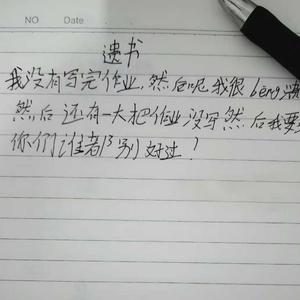 NO Date
遗书
我没有写完作业,然后呢我很 bēng
然后还有一大把作业没写然后我要
你们谁都别对过!